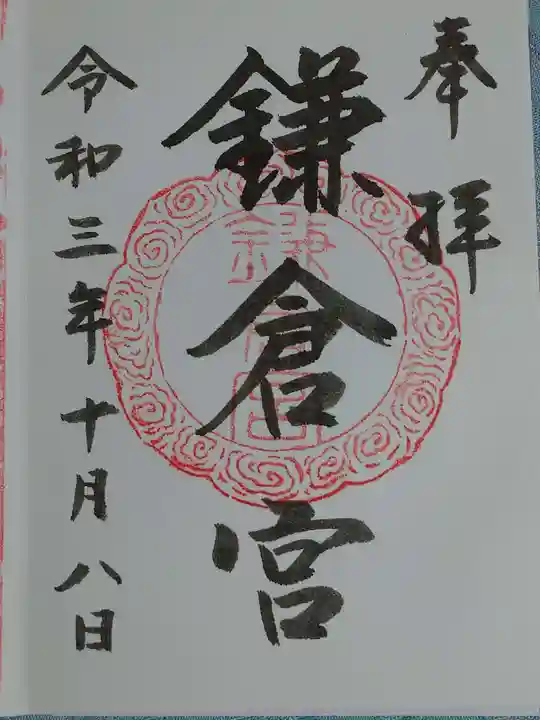 奉拝
鎌倉宮
令和三年十月八日